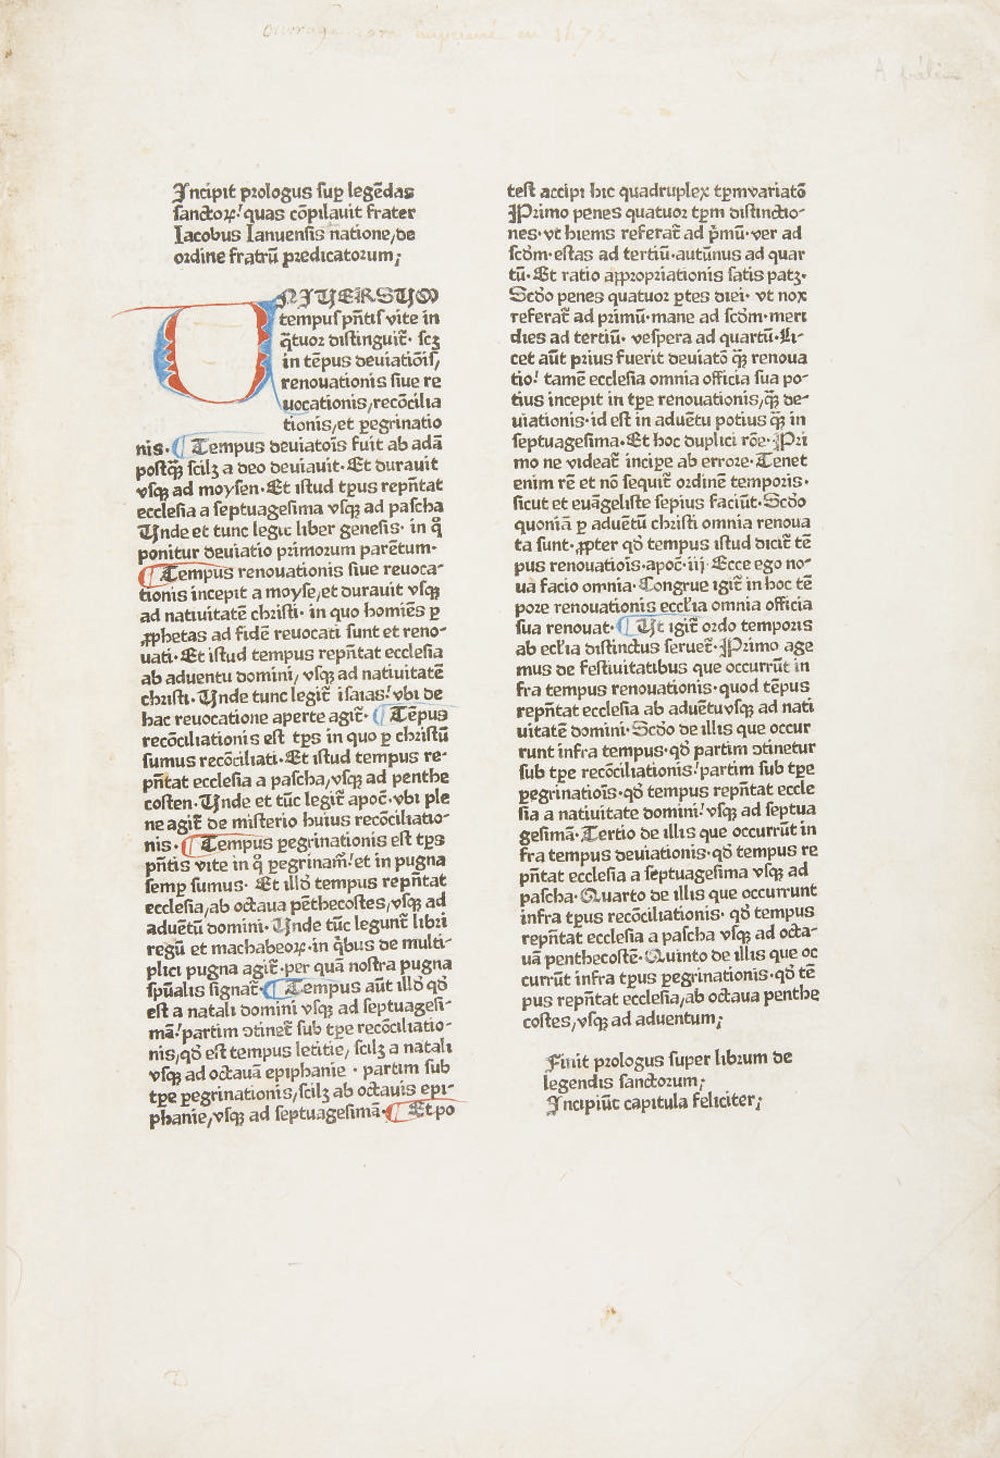 Incipit prologus sup̱ legēdas
sanctoꝝ! quas cōpilauit frater
Iacobus Ianuensis natione, de
ordine fratrū predicatorum;
UNIUERSUM
tempus pn̄tis vite in
q̄tuor distinguit᷑· scꝫ
in tēpus deuiatiōis,
renouationis siue re
uocationis, recōcilia
tionis, et ꝑegrinatio
nis· Tempus deuiatoīs fuit ab adā
postqꝫ̄ scilꝫ a deo deuiauit· Et durauit
vsqꝫ ad moysen· Et istud tp̱us repn̄tat
ecclesia a septuagesima vsqꝫ ad pascha
Unde et tunc legit᷑ liber genesis· in q̊
ponitur deuiatio primorum parētum·
Tempus renouationis siue reuoca-
tionis incepit a moyse, et durauit vsqꝫ
ad natiuitatē christi· in quo homiēs ꝑ
ꝓphetas ad fidē reuocati sunt et reno-
uati· Et istud tempus repn̄tat ecclesia
ab aduentu domini, vsqꝫ ad natiuitatē
christi· Unde tunc legit᷑ isaias! vbi de
hac reuocatione aperte agit᷑· Tēpus
recōciliationis est tp̱s in quo ꝑ christū
sumus recōciliati· Et istud tempus re-
pn̄tat ecclesia a pascha, vsqꝫ ad penthe
costen· Unde et tūc legit᷑ apoc̄· vbi ple
ne agit᷑ de misterio huius recōciliatio-
nis· Tempus ꝑegrinationis est tp̱s
pn̄tis vite in q̊ ꝑegrinam᷑! et in pugna
semꝑ sumus· Et illd̄ tempus repn̄tat
ecclesia, ab octaua pēthecostes, vsqꝫ ad
aduētū domini· Unde tūc legunt᷑ libri
regū et machabeoꝝ· in q̄bus de multi-
plici pugna agit᷑· per quā nostra pugna
sp̄ualis signat᷑· Tempus aūt illd̄ qd̄
est a natali domini vsqꝫ ad septuagesi-
mā! partim ↄtinet᷑ sub tp̱e recōciliatio-
nis, qd̄ est tempus letitie, scilꝫ a natali
vsqꝫ ad octauā epiphanie · partim sub
tp̱e ꝑegrinationis, scilꝫ ab octauis epi-
phanie, vsqꝫ ad septuagesimā· Et po
test accipi hic quadruplex tp̱m variatō
Primo penes quatuor tp̱m distinctio-
nes· vt hiems referat᷑ ad p̄mū· ver ad
scd̄m· estas ad tertiū· autūnus ad quar
tū· Et ratio appropriationis satis patꝫ·
Scd̄o penes quatuor ꝑtes diei· vt nox
referat᷑ ad primū· mane ad scd̄m· meri
dies ad tertiū· vespera ad quartū· Li-
cet aūt prius fuerit deuiatō qꝫ̄ renoua
tio! tamē ecclesia omnia officia sua po-
tius incepit in tp̱e renouationis, qꝫ̄ de-
uiationis· id est in aduētu potius qꝫ̄ in
septuagesima· Et hoc duplici rōe· Pri
mo ne videat᷑ incipe ab errore· Tenet
enim rē et nō sequit᷑ ordinē temporis·
sicut et euāgeliste sepius faciūt· Scd̄o
quoniā ꝑ aduētū christi omnia renoua
ta sunt· ꝓpter qd̄ tempus istud dicit᷑ tē
pus renouatiois· apoc̄· iij· Ecce ego no-
ua facio omnia· Congrue igit᷑ in hoc tē
pore renouationis eccl̄ia omnia officia
sua renouat· Ut igit᷑ ordo temporis
ab ecl̄ia distinctus seruet᷑· Primo age
mus de festiuitatibus que occurrūt in
fra tempus renouationis· quod tēpus
repn̄tat ecclesia ab aduētu vsqꝫ ad nati
uitatē domini· Scd̄o de illis que occur
runt infra tempus· qd̄ partim ↄtinetur
sub tp̱e recōciliationis! partim sub tp̱e
ꝑegrinatiois· qd̄ tempus repn̄tat eccle
sia a natiuitate domini! vsqꝫ ad septua
gesimā· Tertio de illis que occurrūt in
fra tempus deuiationis· qd̄ tempus re
pn̄tat ecclesia a septuagesima vsqꝫ ad
pascha· Quarto de illis que occurrunt
infra tp̱us recōciliationis· qd̄ tempus
repn̄tat ecclesia a pascha vsqꝫ ad octa-
uā penthecostē· Quinto de illis que oc
currūt infra tp̱us ꝑegrinationis· qd̄ tē
pus repn̄tat ecclesia, ab octaua penthe
costes, vsqꝫ ad aduentum;
Finit prologus super librum de
legendis sanctorum;
Incipiūt capitula feliciter;